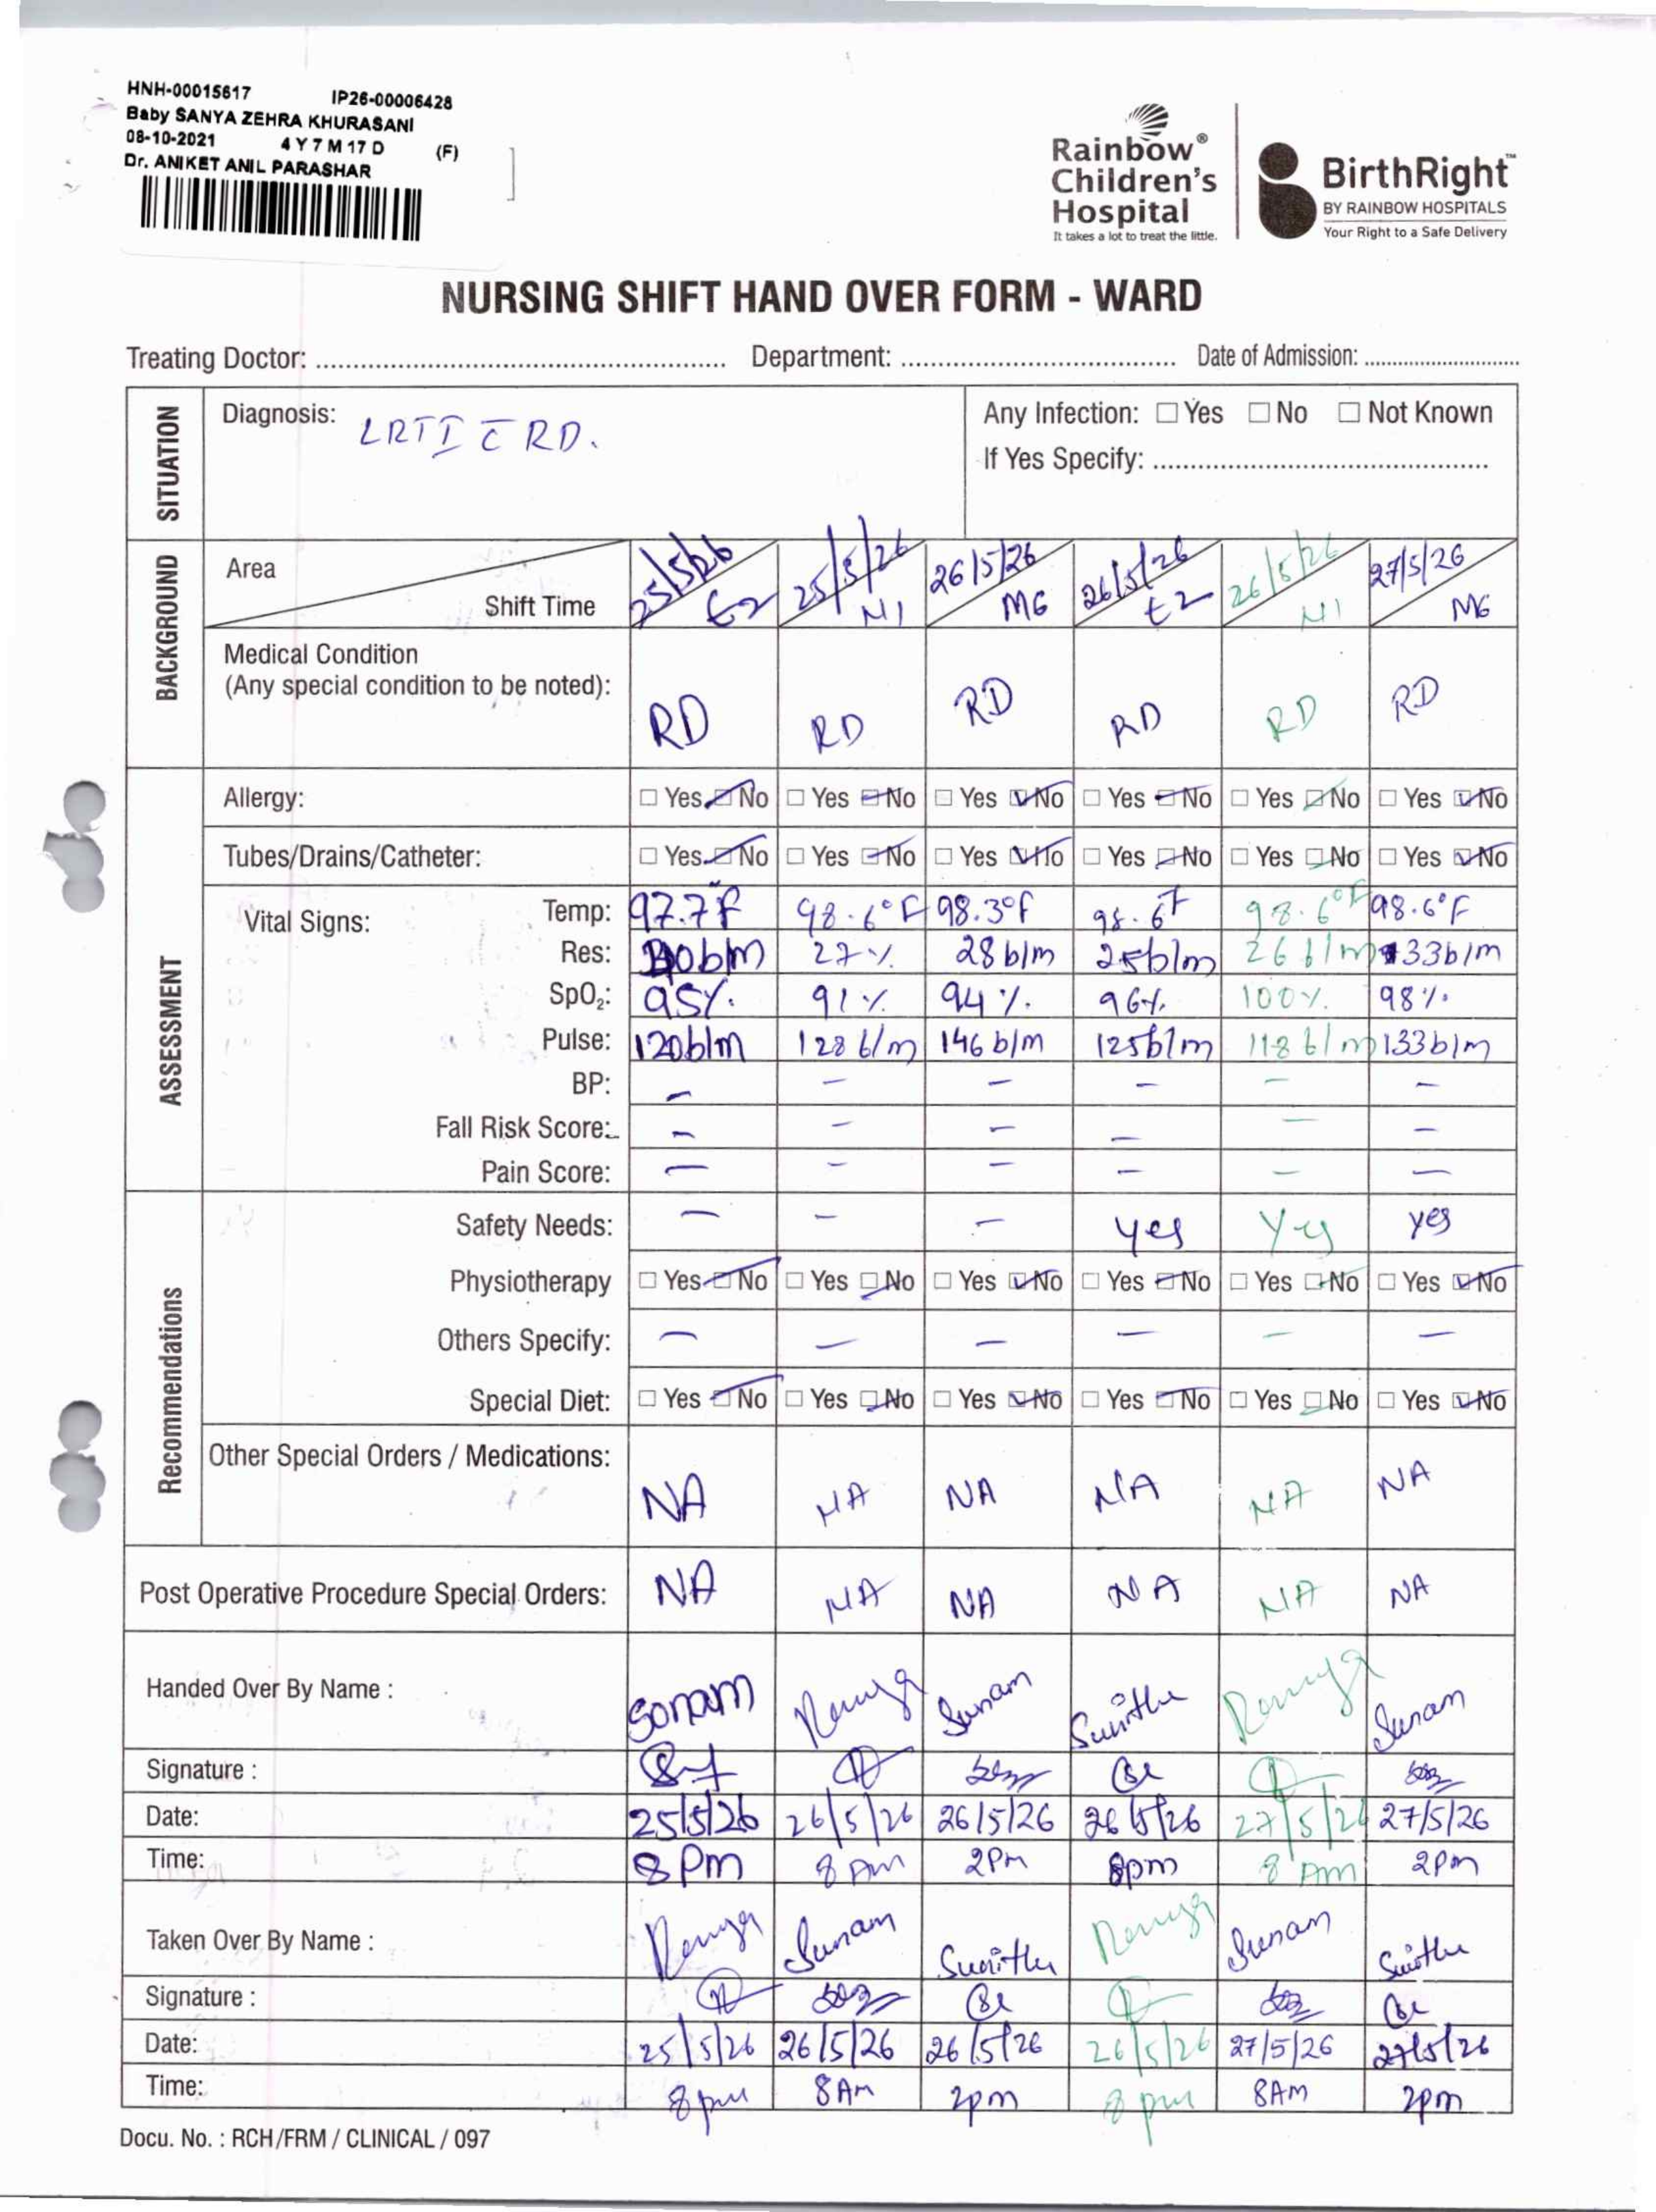 HNH-00015617 IP26-00006428
Baby SANYA ZEHRA KHURASANI
08-10-2021 4 Y 7 M 17 D (F)
Dr. ANIKET ANIL PARASHAR
Rainbow® Children's Hospital
It takes a lot to treat the little.
BirthRight™
BY RAINBOW HOSPITALS
Your Right to a Safe Delivery
NURSING SHIFT HAND OVER FORM - WARD
Treating Doctor: Department: Date of Admission:
SITUATION
Diagnosis: LRTI c̄ RD.
Any Infection: ☐ Yes ☐ No ☐ Not Known
If Yes Specify:
BACKGROUND
Area 25/5/26 25/5/26 26/5/26 26/5/26 26/5/26 27/5/26
Shift Time E2 N1 M6 E2 N1 M6
Medical Condition
(Any special condition to be noted): RD RD RD RD RD RD
ASSESSMENT
Allergy: ☐ Yes ☑ No ☐ Yes ☑ No ☐ Yes ☑ No ☐ Yes ☑ No ☐ Yes ☑ No ☐ Yes ☑ No
Tubes/Drains/Catheter: ☐ Yes ☑ No ☐ Yes ☑ No ☐ Yes ☑ No ☐ Yes ☑ No ☐ Yes ☑ No ☐ Yes ☑ No
Vital Signs: Temp: 97.7F 98.6°F 98.3°F 98.6F 98.6°F 98.6°F
Res: 27% 28 b/m 25b/m 26 b/m 33b/m
SpO₂: 95% 91% 94% 96% 100% 98%
Pulse: 120b/m 128 b/m 146 b/m 125b/m 118 b/m 133b/m
BP: – – – – – –
Fall Risk Score: – – – – – –
Pain Score: – – – – – –
Recommendations
Safety Needs: – – – yes yes yes
Physiotherapy ☐ Yes ☑ No ☐ Yes ☑ No ☐ Yes ☑ No ☐ Yes ☑ No ☐ Yes ☑ No ☐ Yes ☑ No
Others Specify: – – – – – –
Special Diet: ☐ Yes ☑ No ☐ Yes ☑ No ☐ Yes ☑ No ☐ Yes ☑ No ☐ Yes ☑ No ☐ Yes ☑ No
Other Special Orders / Medications: NA NA NA NA NA NA
Post Operative Procedure Special Orders: NA NA NA NA NA NA
Handed Over By Name : Sonam Ramya Sunam Sunitha Ramya Sunam
Signature :
Date: 25/5/26 26/5/26 26/5/26 26/5/26 27/5/26 27/5/26
Time: 8 Pm 8 Am 2PM 8pm 8 Am 2pm
Taken Over By Name : Ramya Sunam Sunitha Ramya Sunam Sunitha
Signature :
Date: 25/5/26 26/5/26 26/5/26 26/5/26 27/5/26 27/5/26
Time: 8 pm 8 AM 2pm 8 pm 8AM 2pm
Docu. No. : RCH/FRM / CLINICAL / 097